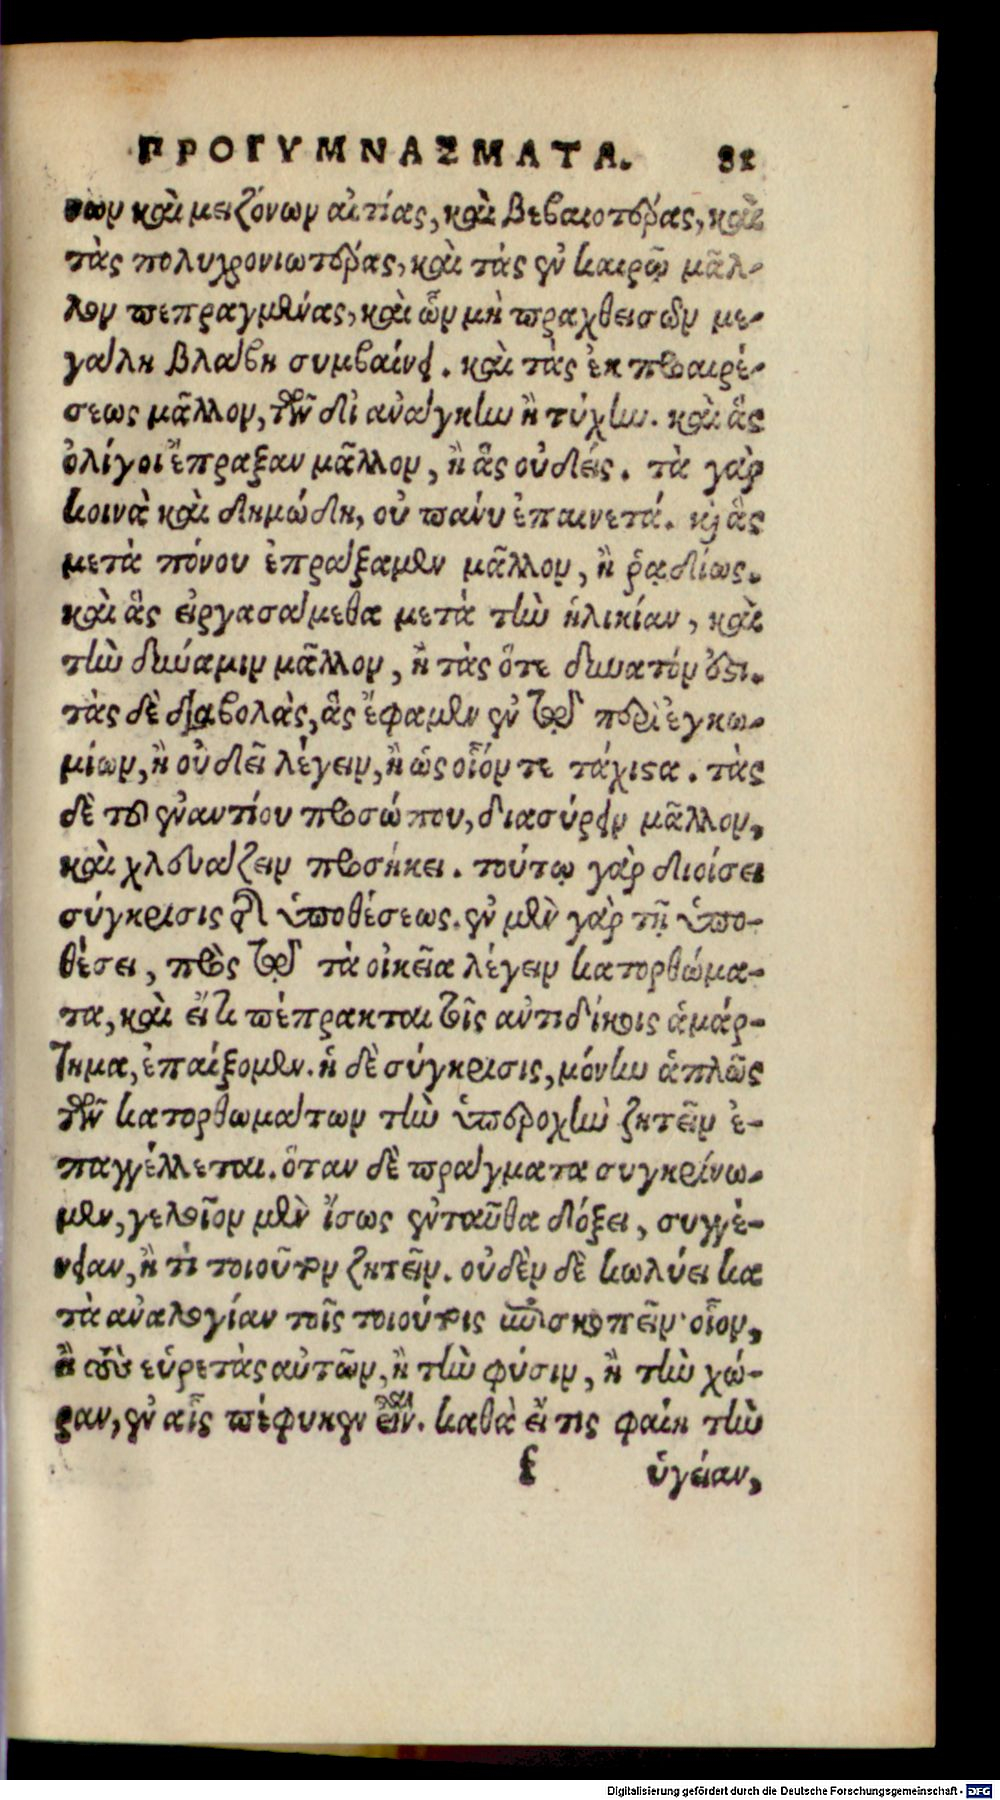 ΠΡΟΓΥΜΝΑΣΜΑΤΑ. 81
νων καὶ μειζόνων αἰτίας, καὶ βεβαιοτέρας, καὶ
τὰς πολυχρονιωτέρας, καὶ τὰς ἐν καιρῷ μᾶλ-
λον πεπραγμένας, καὶ ὧν μὴ πραχθεισῶν με-
γάλη βλάβη συμβαίνει. καὶ τὰς ἐκ προαιρέ-
σεως μᾶλλον, τῶν δι' ἀνάγκην ἢ τύχην. καὶ ἃς
ὀλίγοι ἔπραξαν μᾶλλον, ἢ ἃς οὐδείς. τὰ γὰρ
κοινὰ καὶ δημώδη, οὐ πάνυ ἐπαινετά. καὶ ἃς
μετὰ πόνου ἐπράξαμεν μᾶλλον, ἢ ῥᾳδίως.
καὶ ἃς εἰργασάμεθα μετὰ τὴν ἡλικίαν, καὶ
τὴν δύναμιν μᾶλλον, ἢ τὰς ὅτε δυνατόν ἐστι.
τὰς δὲ διαβολὰς, ἃς ἔφαμεν ἐν τῷ περὶ ἐγκω-
μίων, ἢ οὐ δεῖ λέγειν, ἢ ὡς οἷόν τε τάχιστα. τὰς
δὲ τοῦ ἐναντίου προσώπου, διασύρειν μᾶλλον,
καὶ χλευάζειν προσήκει. τούτῳ γὰρ διοίσει
σύγκρισις τῆς ὑποθέσεως. ἐν μὲν γὰρ τῇ ὑπο-
θέσει, πρὸς τῷ τὰ οἰκεῖα λέγειν κατορθώμα-
τα, καὶ εἴ τι πέπρακται τοῖς αὐτιδίκοις ἁμάρ-
τημα, ἐπαίξομεν. ἡ δὲ σύγκρισις, μόνην ἁπλῶς
τῶν κατορθωμάτων τὴν ὑπεροχὴν ζητεῖν ἐ-
παγγέλλεται. ὅταν δὲ πράγματα συγκρίνω-
μεν, γελοῖον μὲν ἴσως ἐνταῦθα δόξει, συγγέ-
νειαν, ἤ τι τοιοῦτον ζητεῖν. οὐδὲν δὲ κωλύει κα
τὰ ἀναλογίαν τοῖς τοιούτοις ἐπισκοπεῖν· οἷον,
ἢ τοὺς εὑρετὰς αὐτῶν, ἢ τὴν φύσιν, ἢ τὴν χώ-
ραν, ἐν αἷς πέφυκεν εἶναι. καθὰ εἴ τις φαίη τὴν
f ὑγείαν,
Digitalisierung gefördert durch die Deutsche Forschungsgemeinschaft - DFG